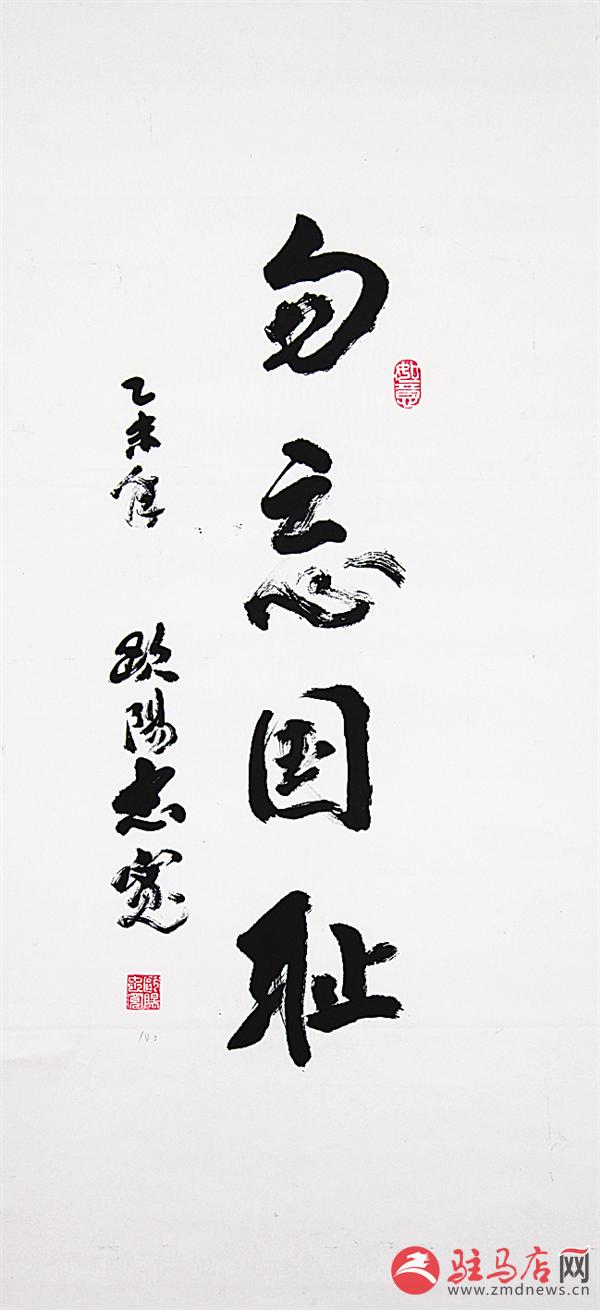 勿忘国耻
乙未年 欧陽志宽
欧陽志宽
驻马店网
www.zmdnews.cn